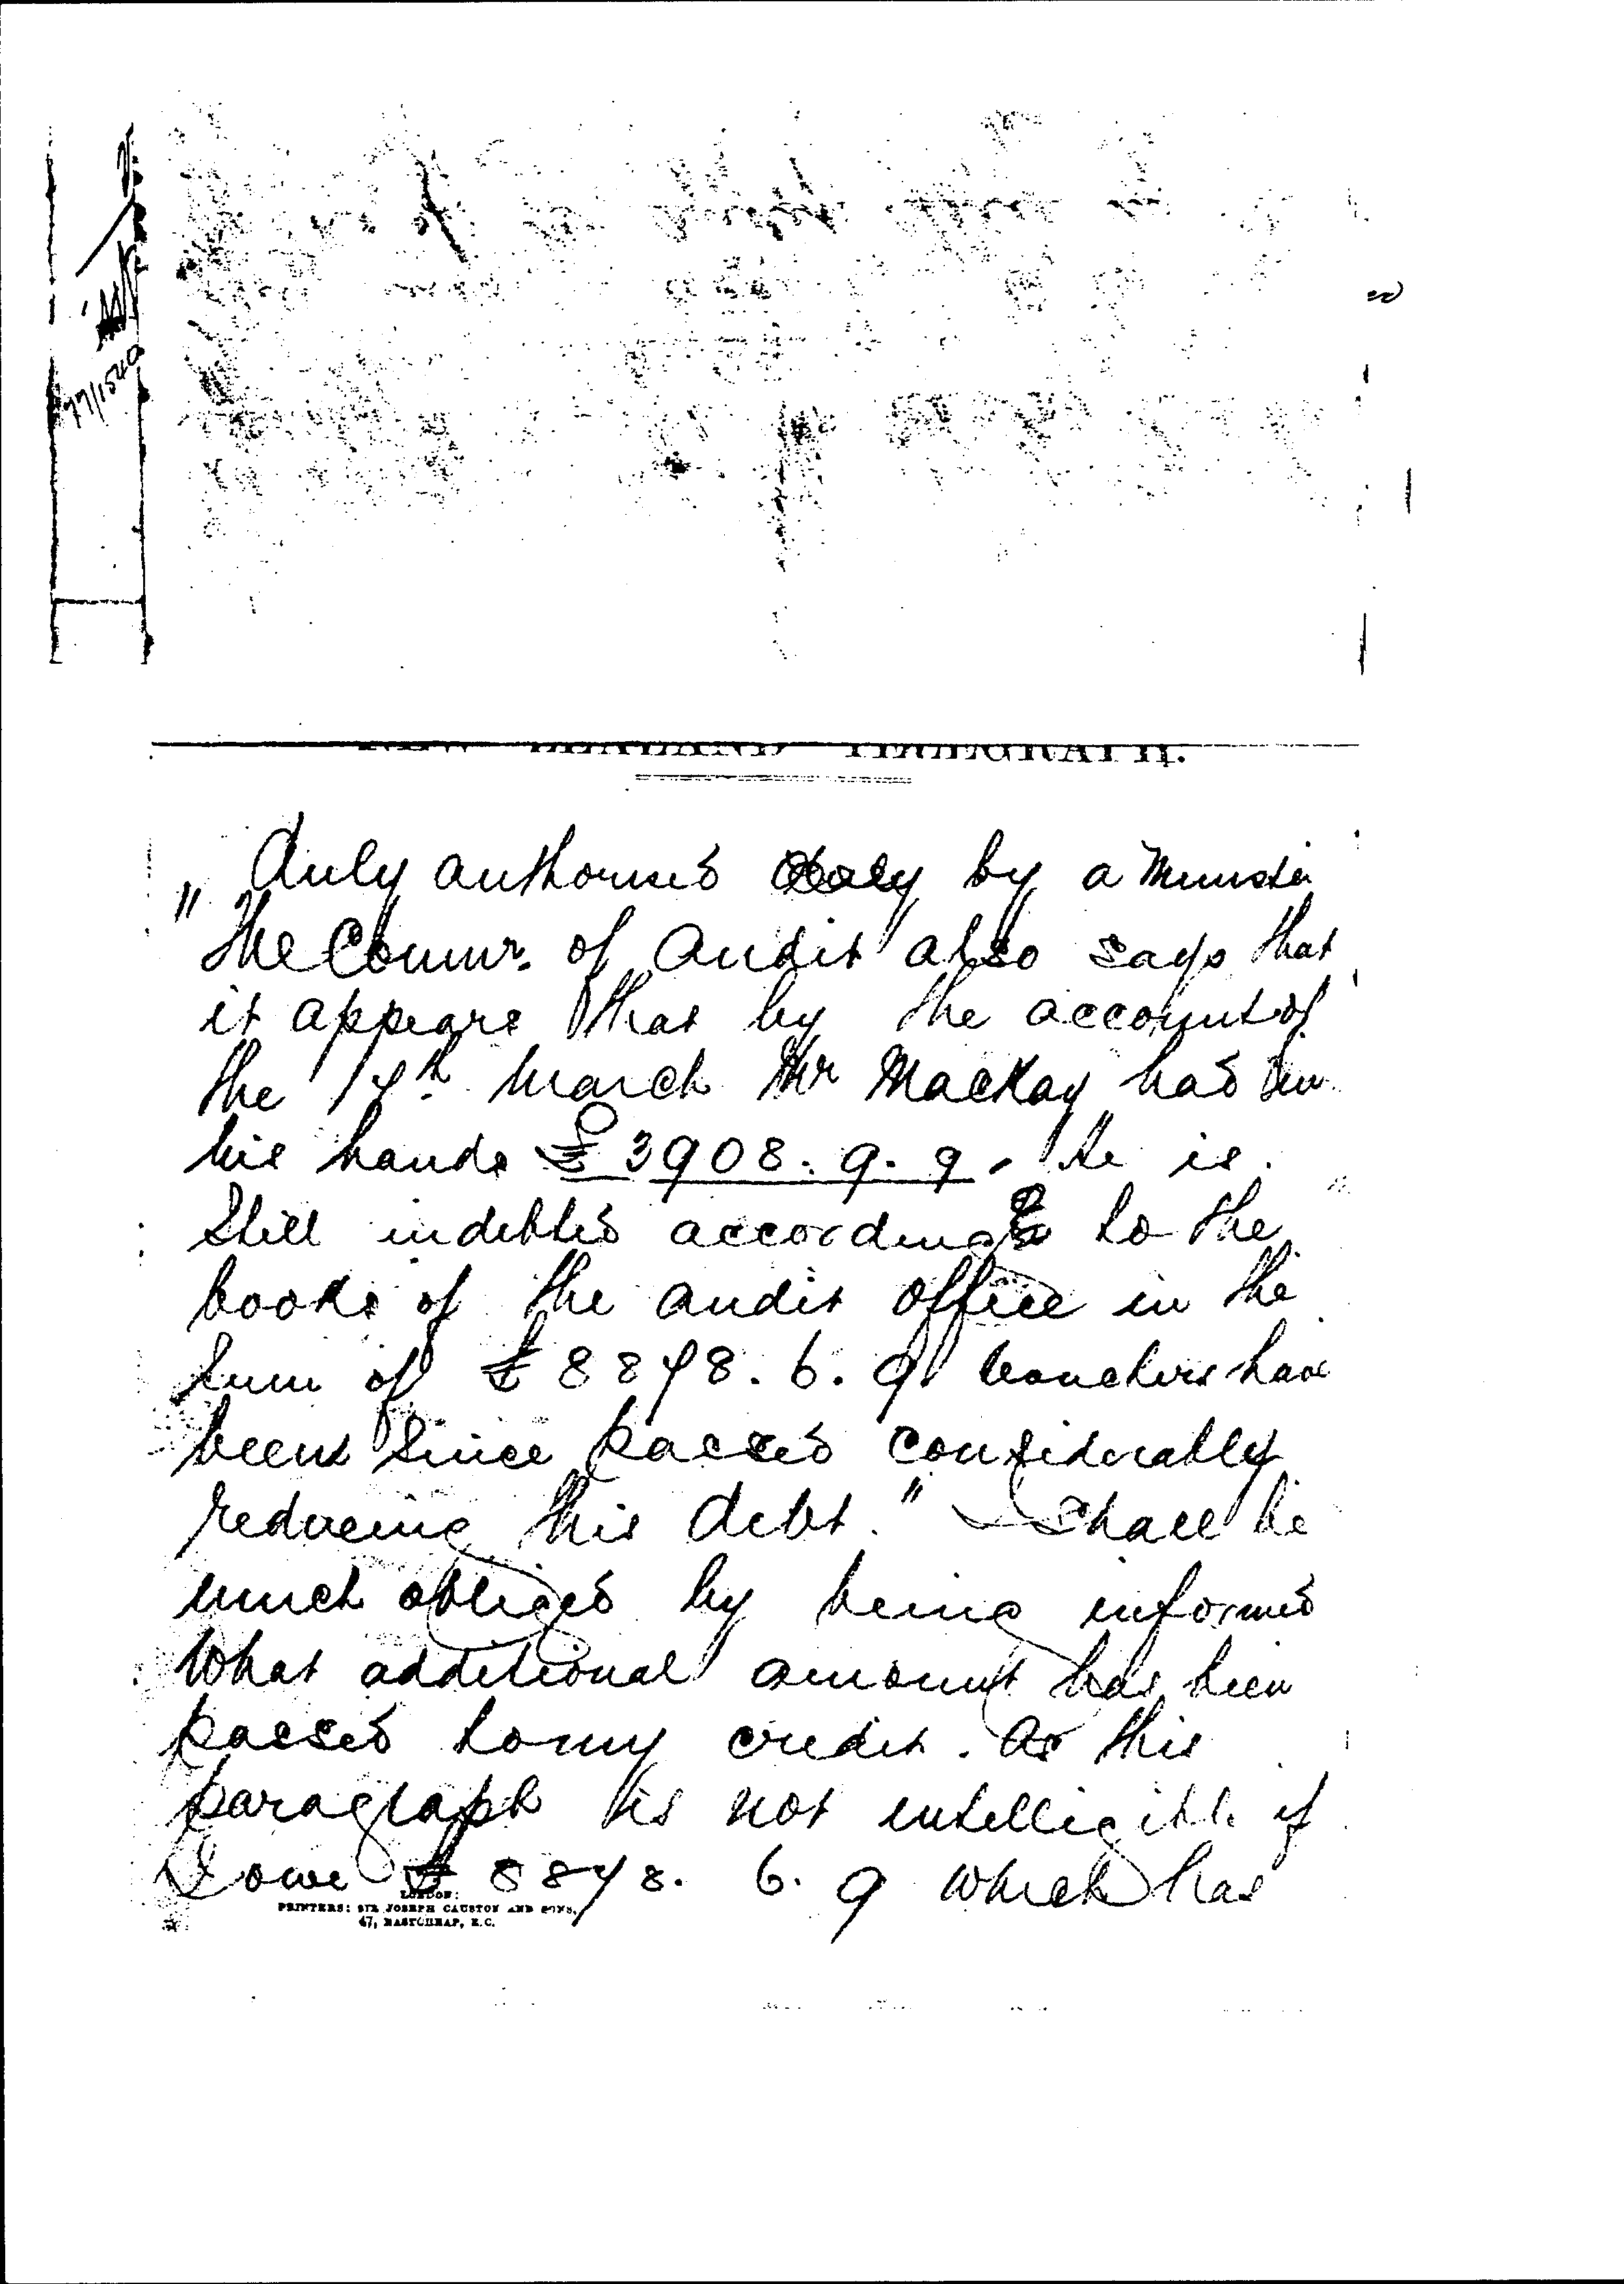 77/1540
NEW ZEALAND TELEGRAPH.
duly authorised by a Minister
" The Commr. of Audit also says that
it appears that by the account of
the 17th March Mr Mackay had in
his hands £3908. 9. 9. He is
still indebted according to the
books of the audit office in the
Sum of £8878. 6. 9 vouchers have
been since passed considerably
reducing this debt." Shall be
much obliged by being informed
What additional amount has been
passed to my credit. As this
paragraph is not intelligible if
I owe £8878. 6. 9 which has
LONDON:
PRINTERS: SIR JOSEPH CAUSTON AND SONS,
47, EASTCHEAP, E.C.